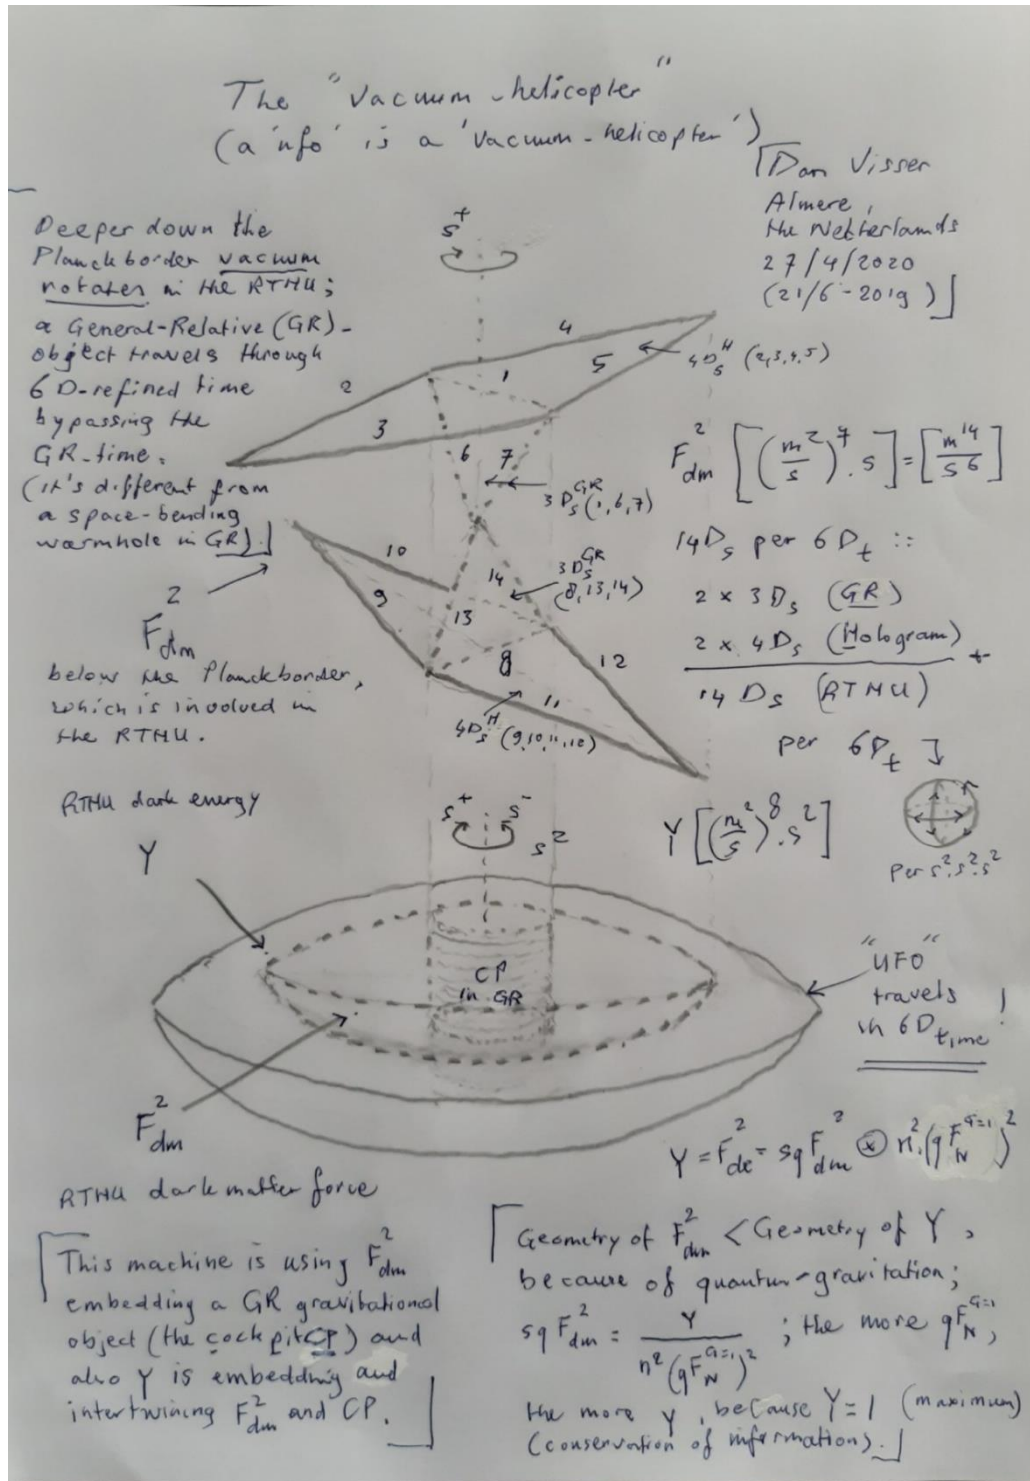 The "vacuum-helicopter"
(a 'ufo' is a 'vacuum-helicopter')
⌈Dan Visser
Almere,
the Netherlands
27/4/2020
(21/6-2019)⌋
Deeper down the
Planckborder vacuum
rotates in the RTHU;
a General-Relative (GR)-
object travels through
6D-refined time
bypassing the
GR-time.
(it's different from
a space-bending
wormhole in GR).⌋
S⁺
4
5
2
1
3
6
7
4Dₛᴴ (2,3,4,5)
3Dₛᴳᴿ (1,6,7)
10
9
14
13
8
12
11
3Dₛᴳᴿ
(8,13,14)
4Dₛᴴ (9,10,11,12)
F²dm
below the Planckborder,
which is involved in
the RTHU.
F²dm [(m²/s)⁷.s]=[m¹⁴/s⁶]
14Dₛ per 6Dₜ ::
2 x 3Dₛ (GR)
2 x 4Dₛ (Hologram)
+
14 Dₛ (RTHU)
per 6Dₜ
Y [(m²/s)⁸.s²]
per s².s².s²
RTHU dark energy
Y
S⁺ S⁻
S²
CP
in GR
"UFO"
travels
in 6Dtime !
F²dm
RTHU dark matter force
Y = F²de = sq F²dm ⊗ n².(qF_N^G=1)²
⌈This machine is using F²dm
embedding a GR gravitational
object (the cockpit CP) and
also Y is embedding and
intertwining F²dm and CP.⌋
⌈Geometry of F²dm < Geometry of Y,
because of quantum-gravitation;
sq F²dm = Y / n²(qF_N^G=1)² ; the more qF_N^G=1,
the more Y, because Y=1 (maximum)
(conservation of information).⌋